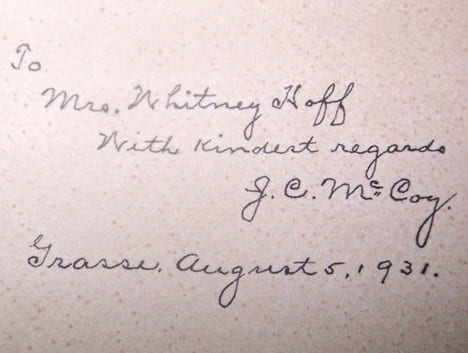 To
Mrs. Whitney Hoff
With kindest regards
J. C. McCoy.
Grasse. August 5, 1931.